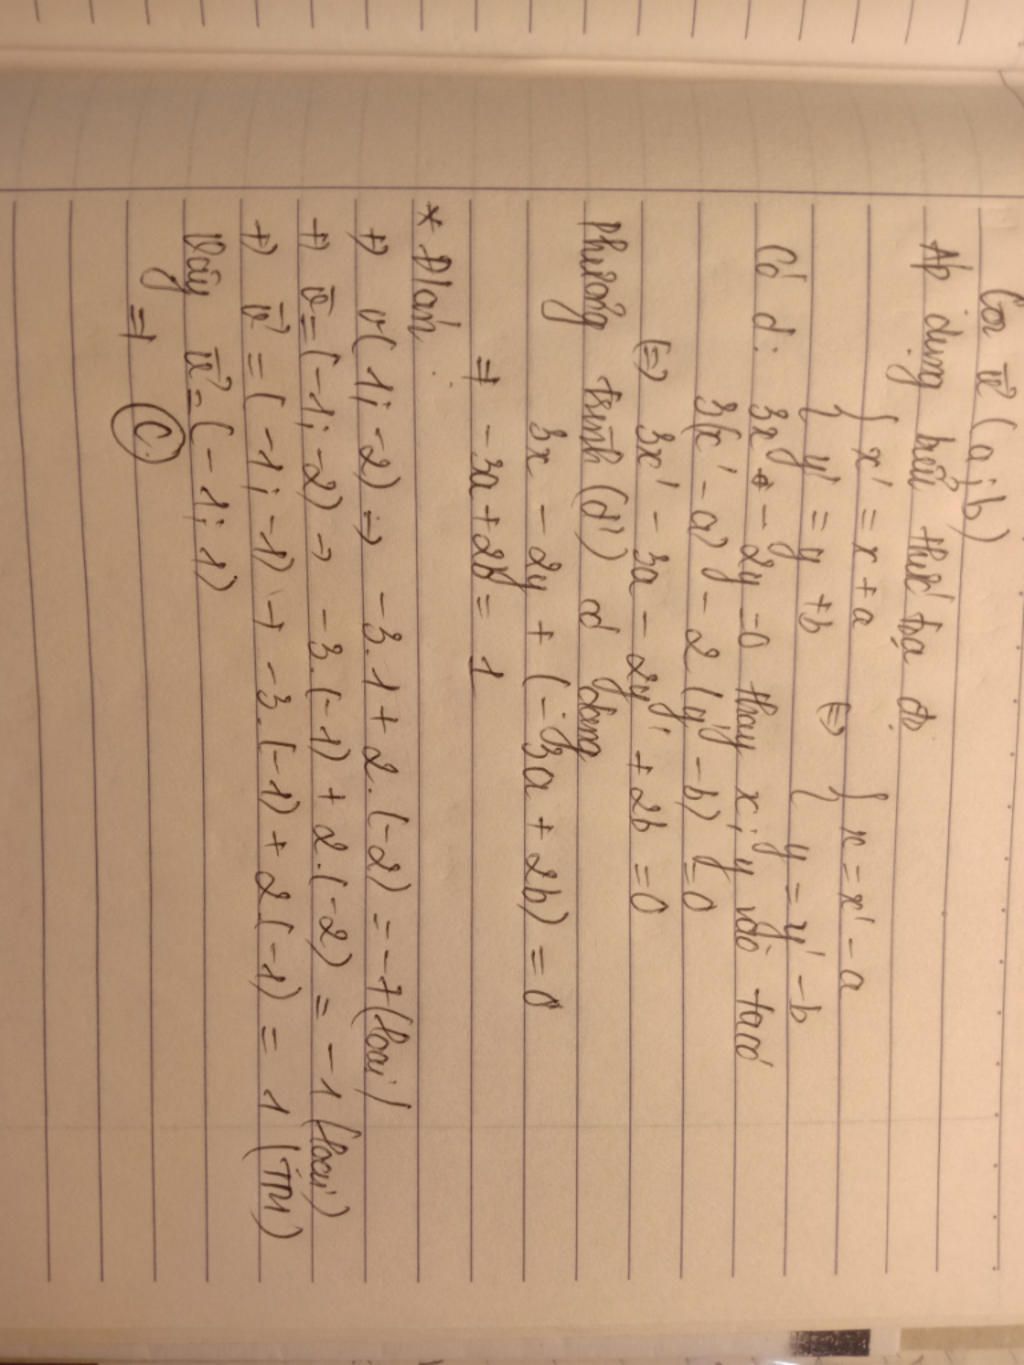 Gọi v⃗ (a;b)
Áp dụng biểu thức tọa độ
{ x' = x + a ⇔ { x = x' - a
{ y' = y + b { y = y' - b
Có d: 3x - 2y = 0 thay x; y vào ta có
3(x' - a) - 2(y' - b) = 0
⇔ 3x' - 3a - 2y' + 2b = 0
Phương trình (d') có dạng
3x - 2y + (-3a + 2b) = 0
⇒ -3a + 2b = 1
* Đ/án:
+) v(1; -2) → -3.1 + 2.(-2) = -7 (loại)
+) v⃗ = (-1; -2) → -3.(-1) + 2.(-2) = -1 (loại)
+) v⃗ = (-1; -1) → -3.(-1) + 2(-1) = 1 (TM)
Vậy v⃗ = (-1; 1)
⇒ C.